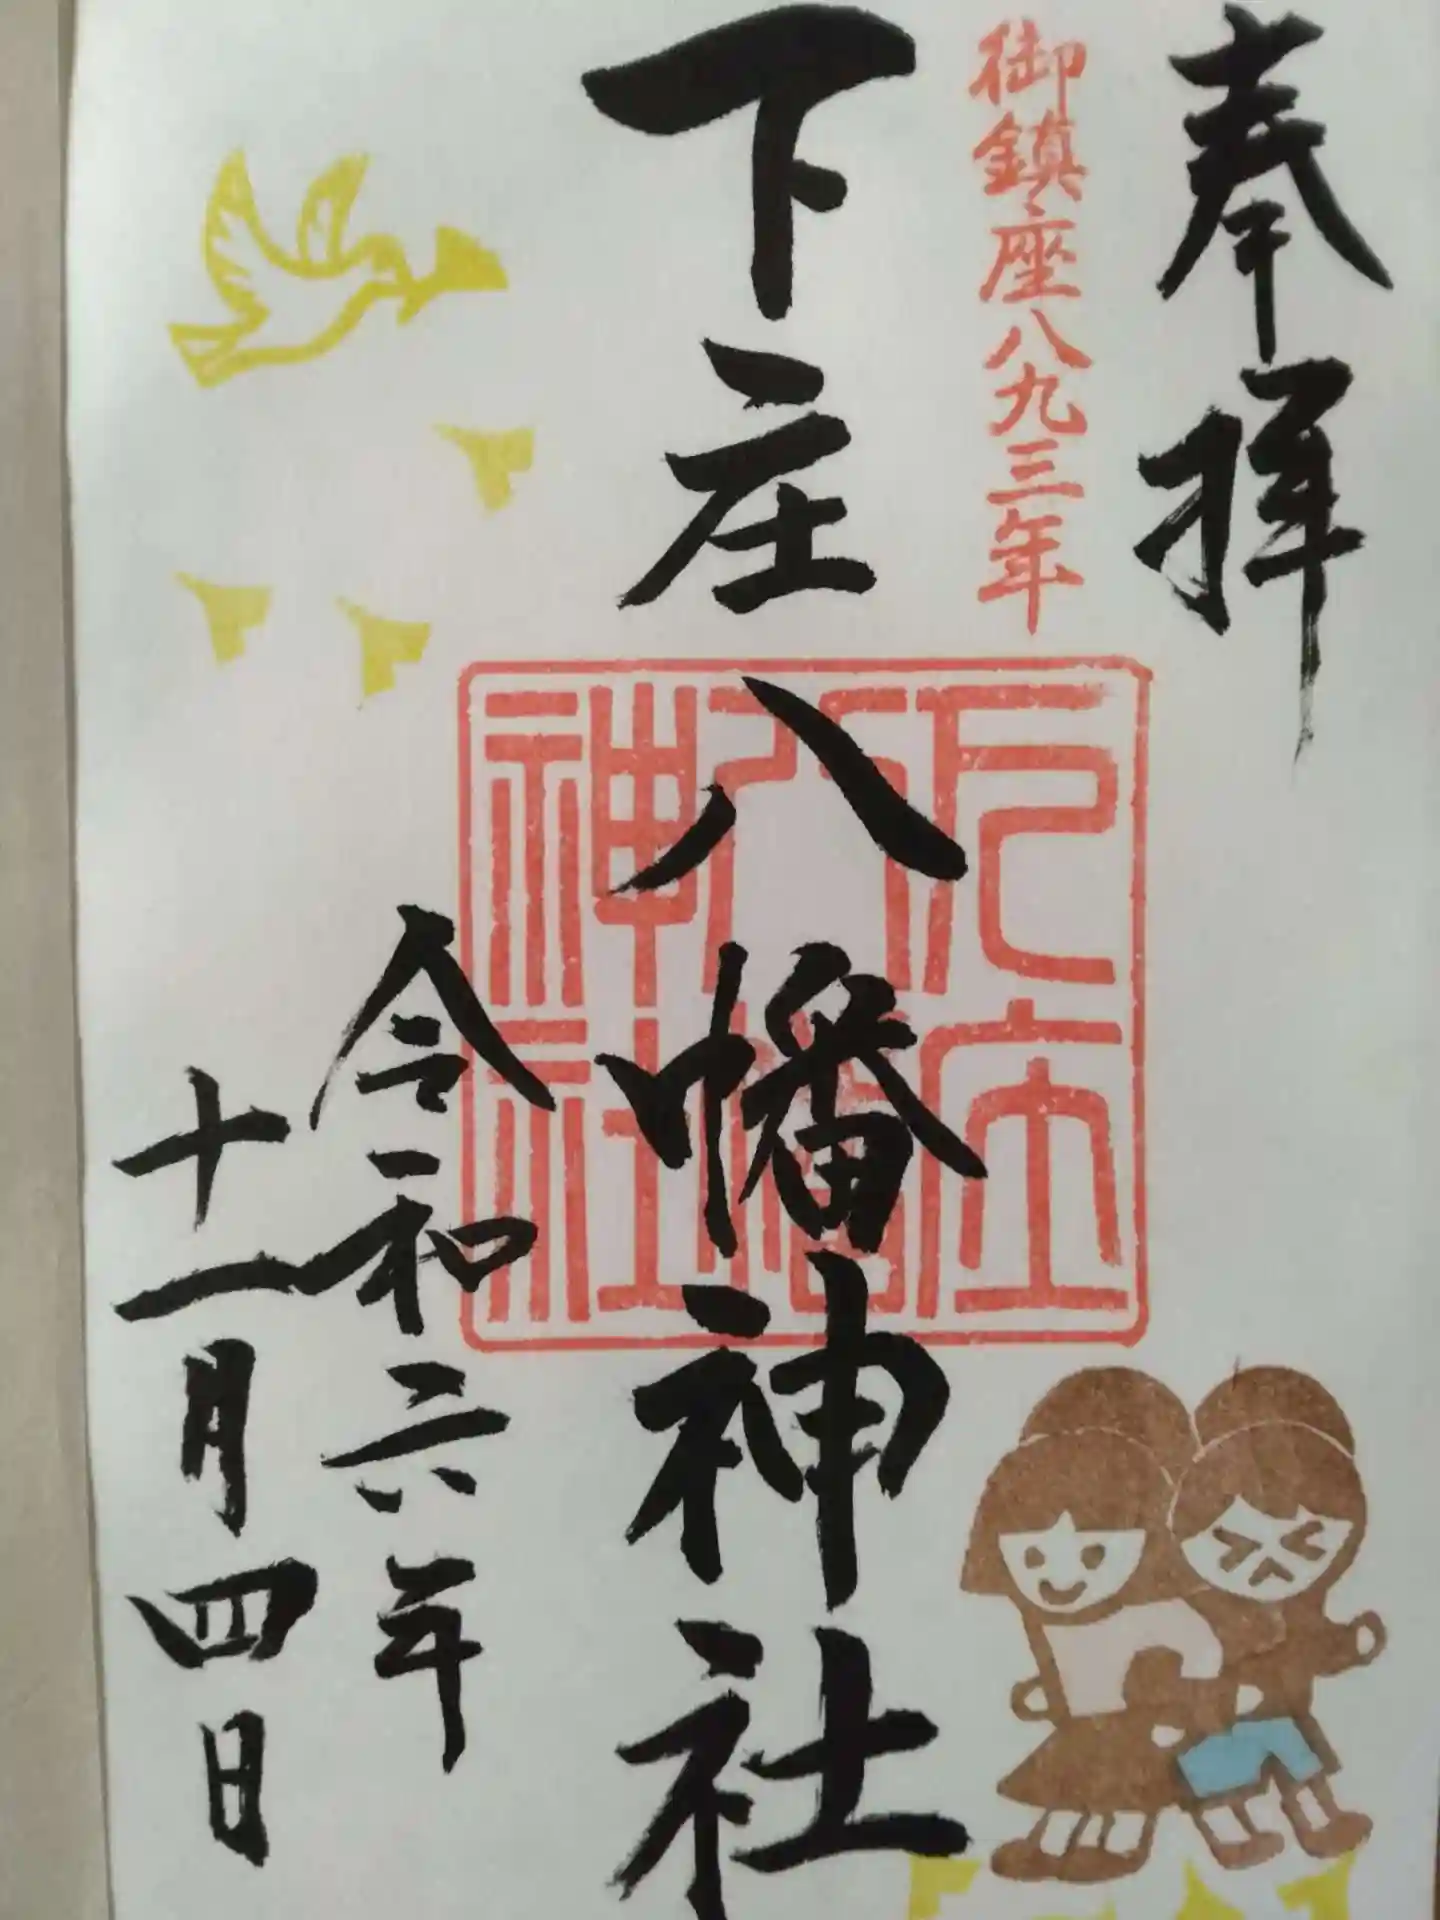 奉拝
御鎮座八九三年
下庄八幡神社
下庄
八幡
神社
令和六年
十一月四日